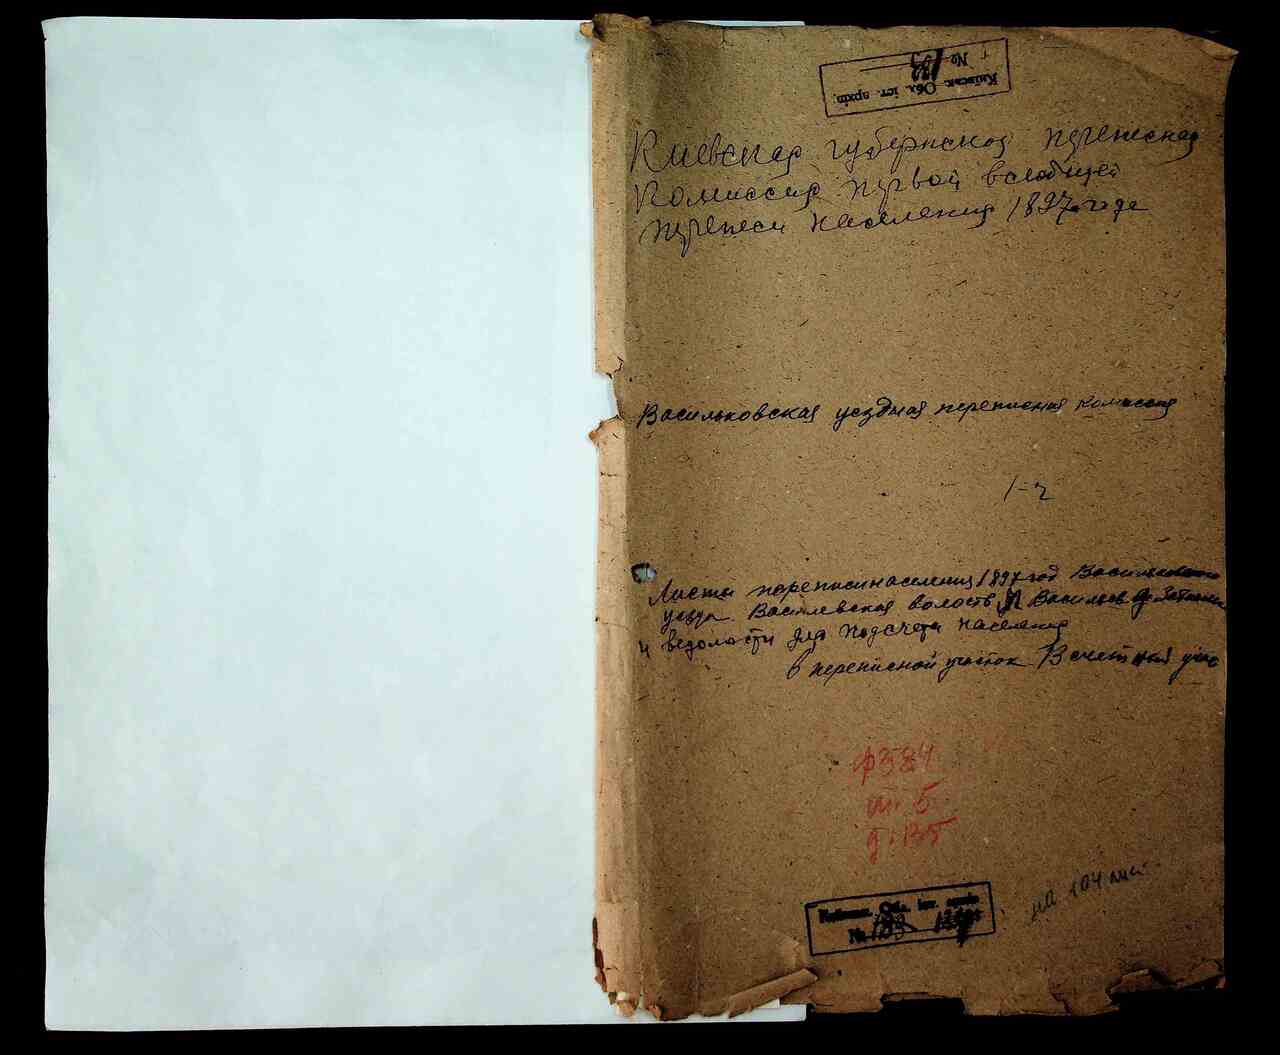 Київськ. Обл. іст. архів.
№ 133
Киевская губернская переписная
Комиссия первой всеобщей
переписи населения 1897 года
Васильковская уездная переписная комиссия
1-2
Листы переписи населения 1897 год Васильковского
уезда Василевская волость Васильев
и ведомости для подсчета населения
в переписной участок счетный
ф 384
т. 5
д. 135
Київськ. Обл. іст. архів
№ 133
на 104 лист.